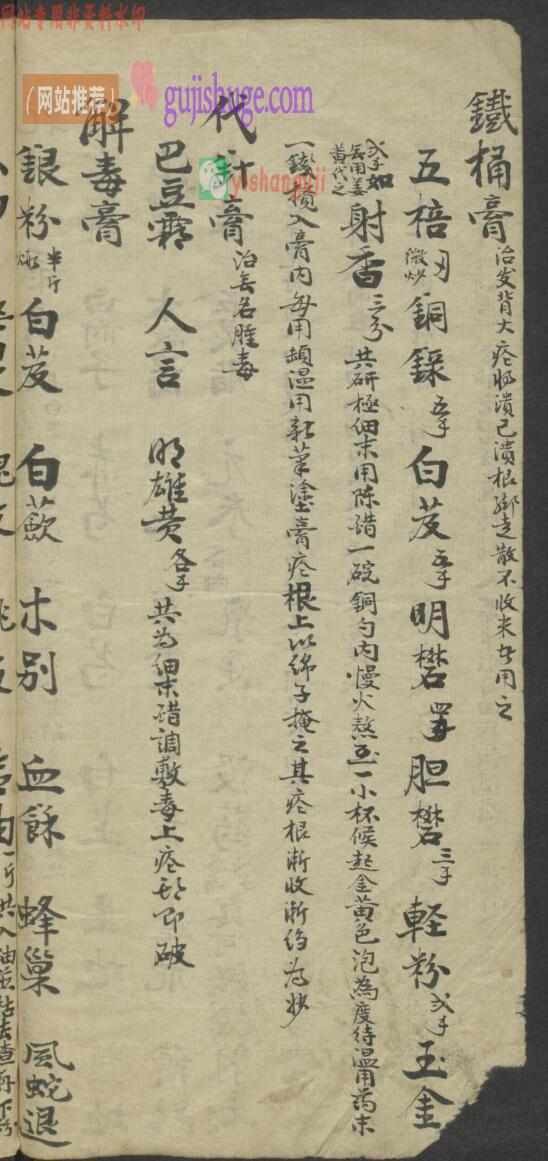 网站专用非资料水印
(网站推荐)
gujishuge.com
yishanguji
鐵桶膏 治发背大疮将潰已潰根腳走散不收束者用之
五棓 微炒 銅錄 五千 白芨 五千 明礬 胆礬 三千 軽粉 弍千 玉金
弍千 如無用姜黄代之 射香 三分 共研極細末用陈醋一碗銅勺内慢火熬至一小杯候起金黄色泡為度待温用药末
一錢攪入膏内每用頓温用新筆塗膏疮根上以綿子掩之其疮根漸收漸约為妙
代針膏 治無名腫毒
巴豆霜 人言 明雄黄 各千 共為細末醋調敷毒上疮即破
解毒膏
銀粉 半斤 白芨 白蘞 木別 血餘 蜂巢 風蛇退